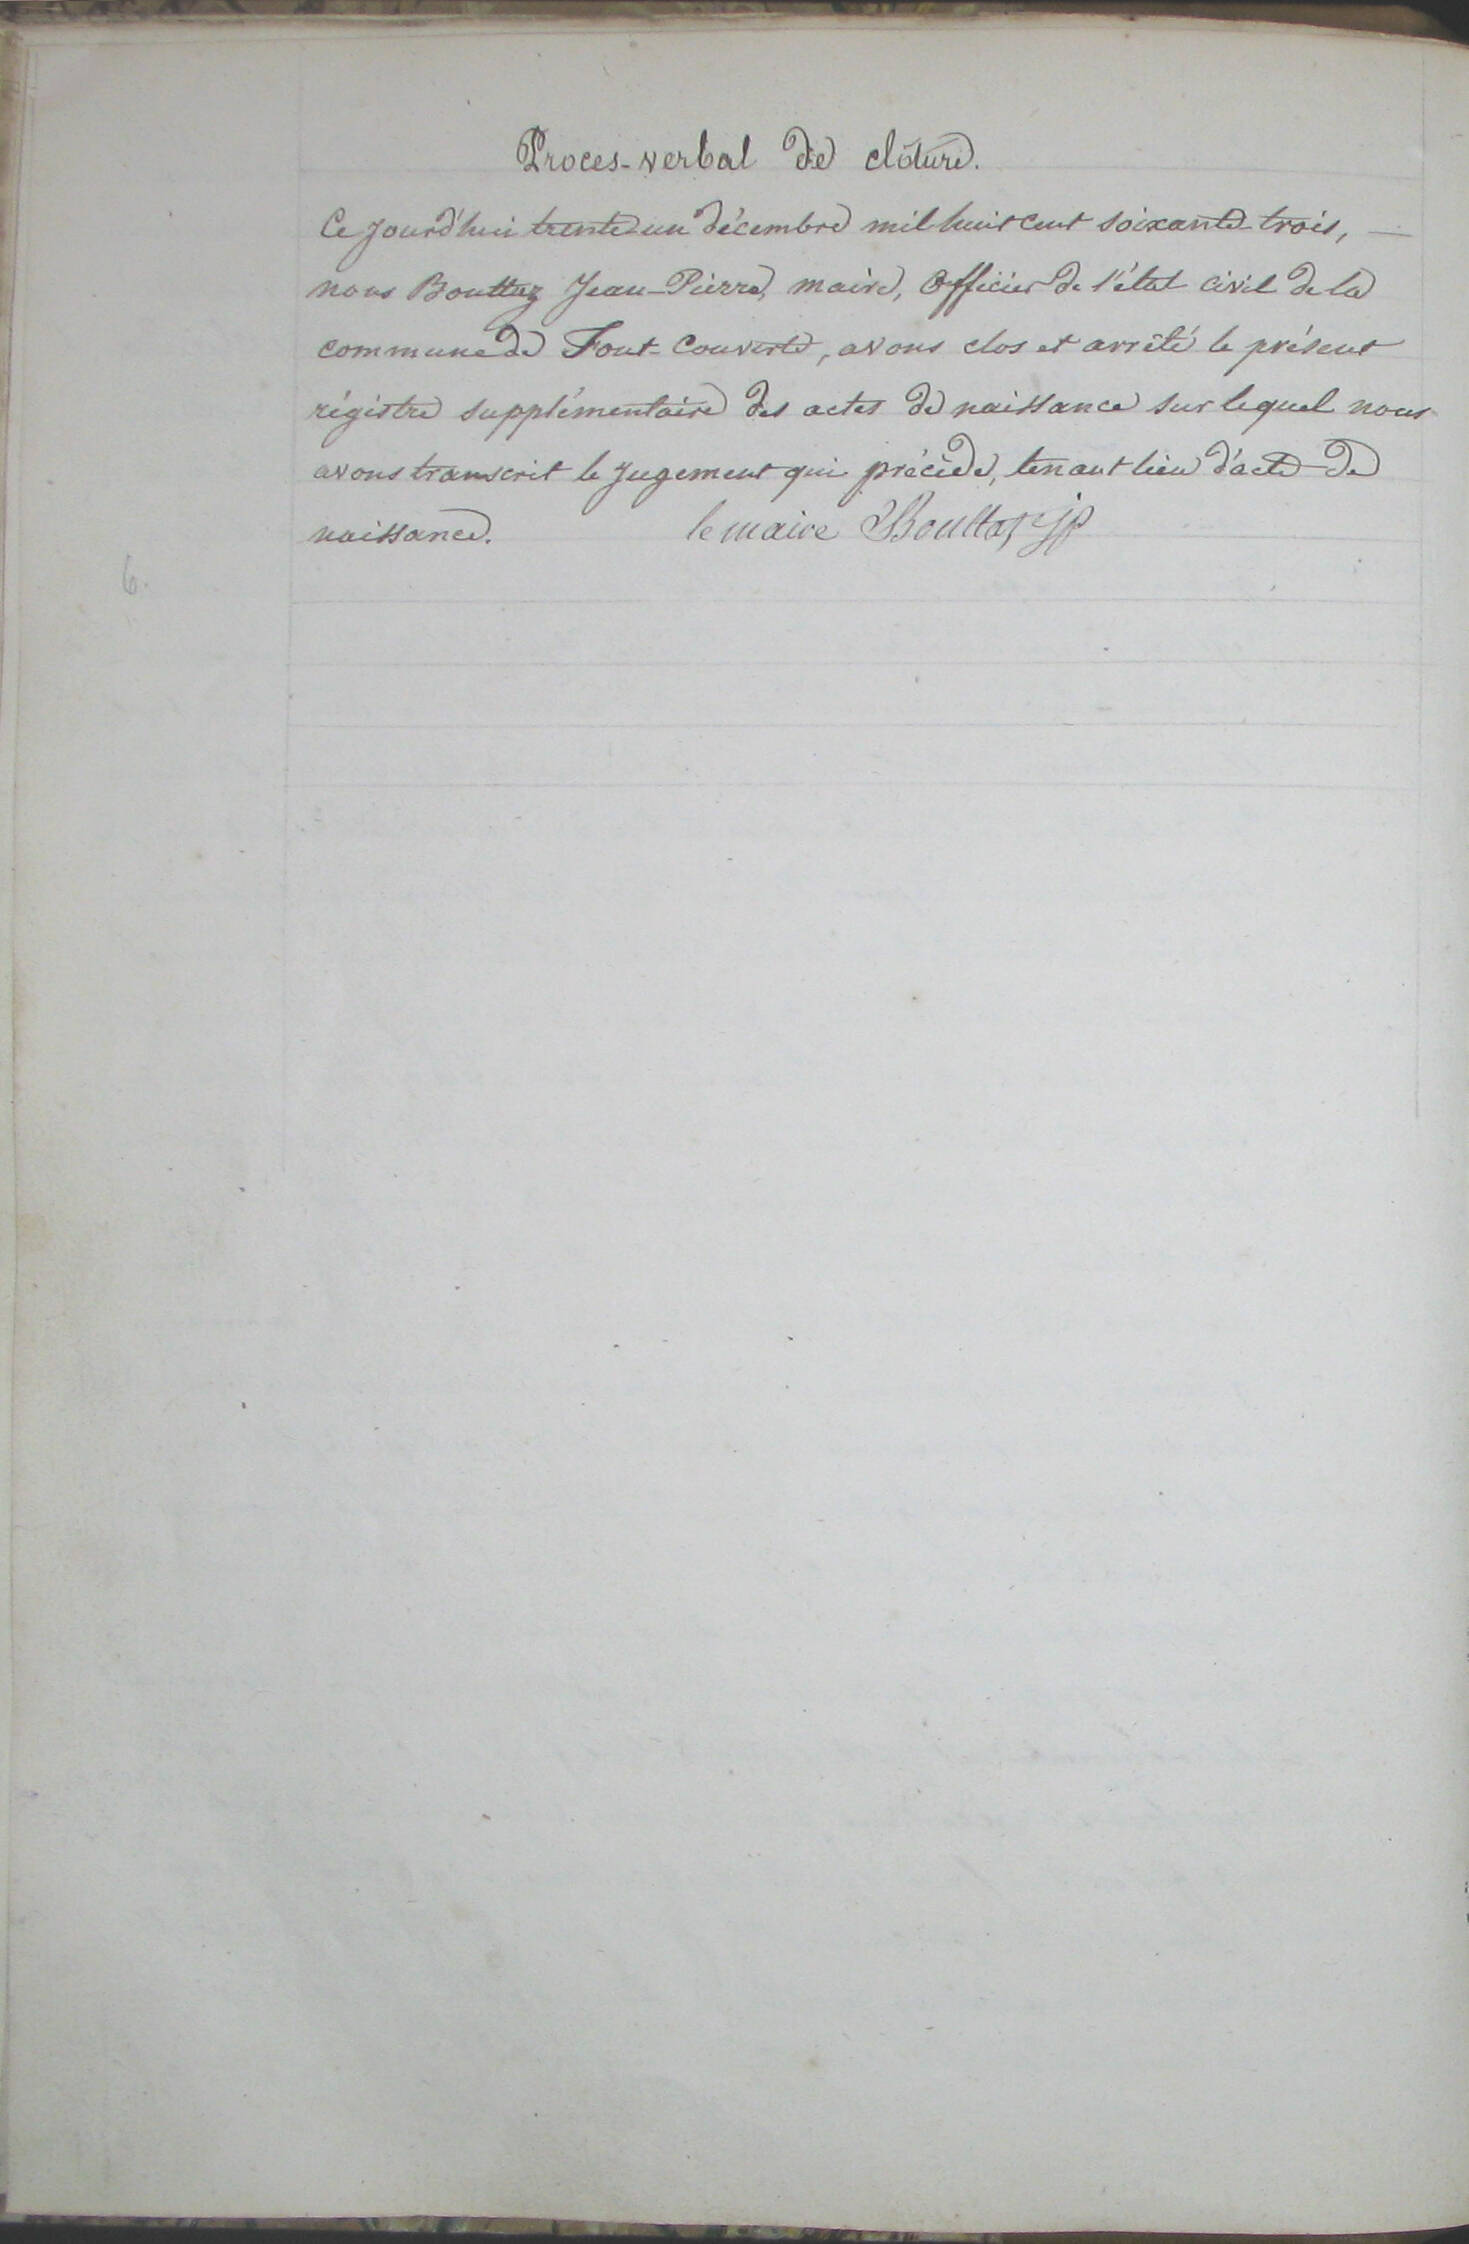 Proces-verbal de clôture.
Ce jourd'hui trente un décembre mil huit cent soixante trois, —
nous Bouttaz Jean-Pierre, maire, Officier de l'état civil de la
commune de Font-Couverte, avons clos et arrêté le présent
régistre supplémentaire des actes de naissance sur lequel nous
avons transcrit le jugement qui précède, tenant lieu d'acte de
naissance. le maire Bouttaz jp
6.